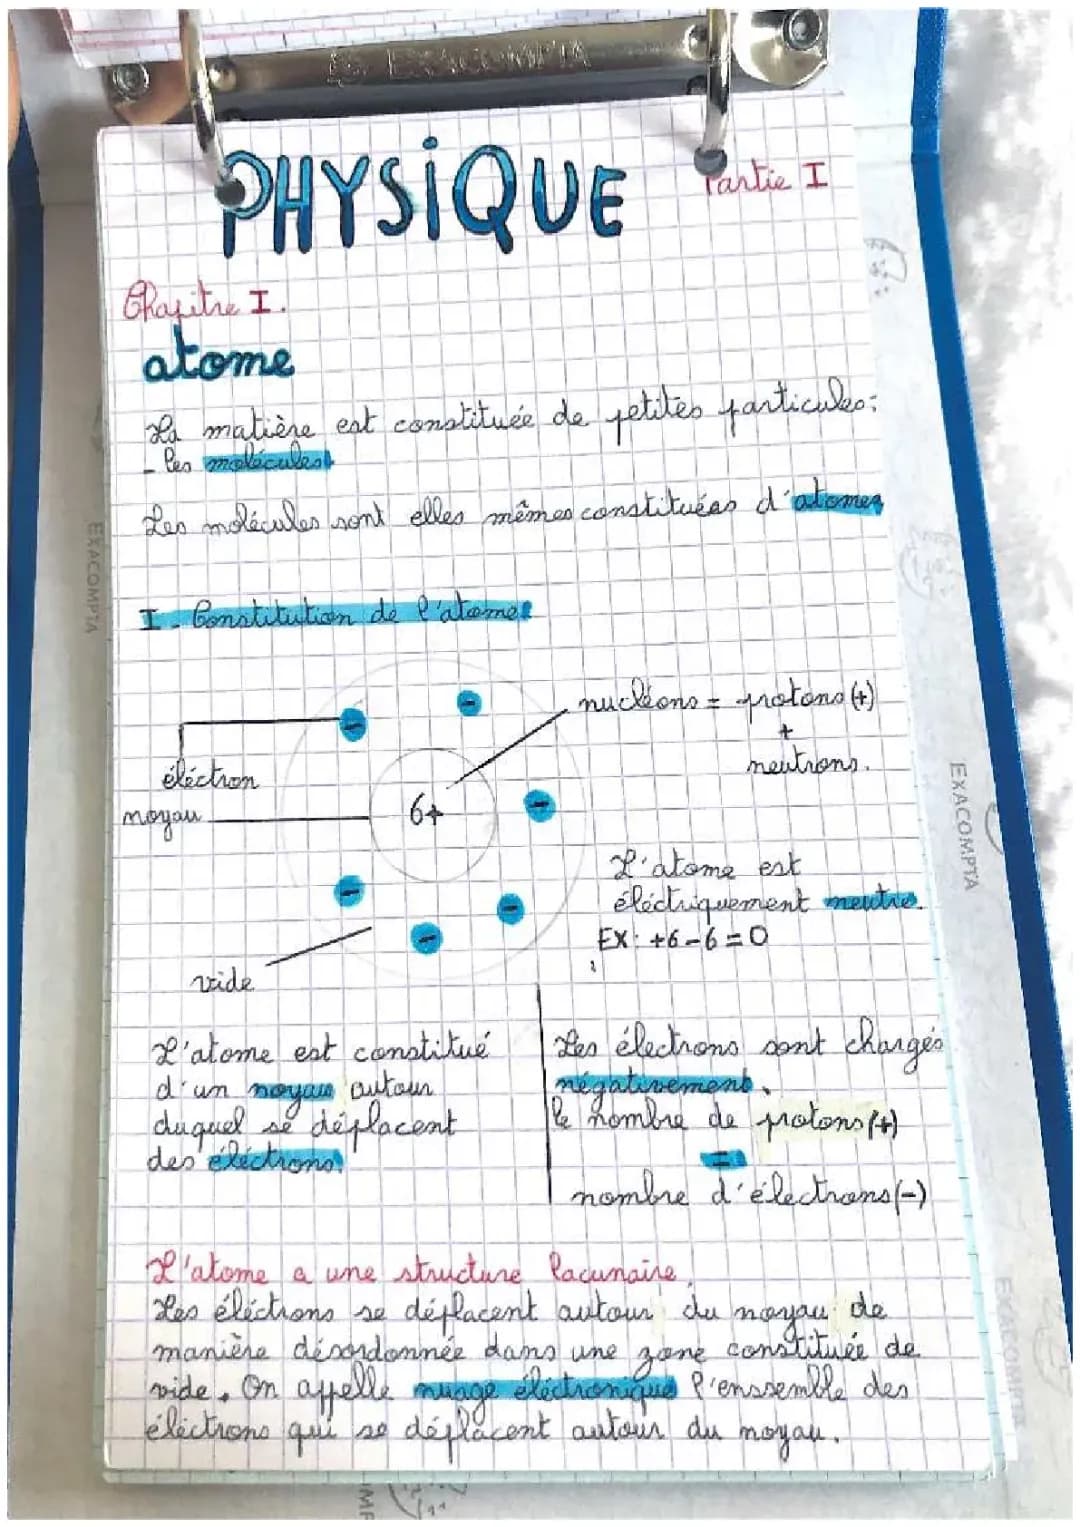 EXACOMPTA
PHYSIQUE
Partie I
Chapitre I.
atome
La matière est constituée de petites particules:
- les molécules
Les molécules sont elles mêmes constituées d'atomes
I - Constitution de l'atome
nucléons = protons (+)
+
neutrons.
éléctron
noyau
6+
vide
L'atome est
éléctriquement neutre.
EX: +6-6=0
L'atome est constitué
d'un noyau autour
duquel se déplacent
des éléctrons.
Les électrons sont chargés
négativement.
le nombre de protons (+)
=
nombre d'électrons (-)
L'atome a une structure lacunaire.
Les éléctrons se déplacent autour du noyau de
manière désordonnée dans une zone constituée de
vide. On appelle nuage éléctronique l'enssemble des
éléctrons qui se déplacent autour du noyau.
EXACOMPTA
EXACOMPTA
EXACOMPTA